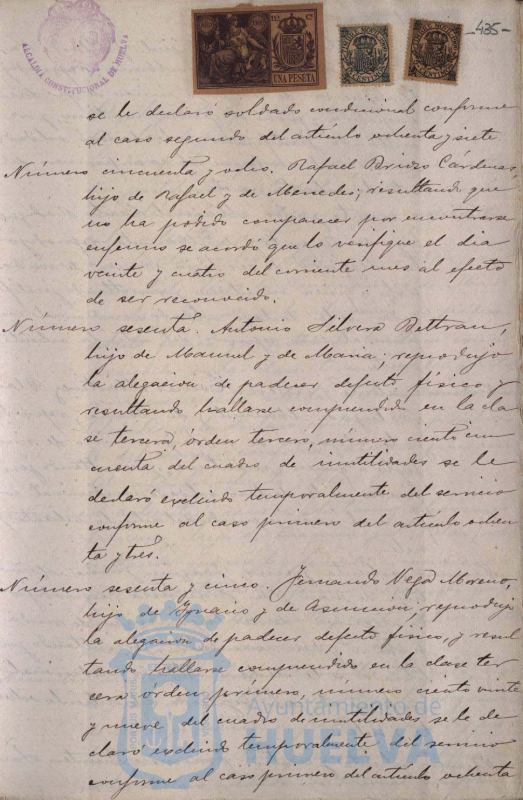 -435-
ALCALDIA CONSTITUCIONAL DE HUELVA
UNA PESETA
se le declaró soldado condicional conforme
al caso segundo del artículo ochenta y siete.
Número cincuenta y ocho. Rafael Cardenas
hijo de Rafael y de Mercedes; resultando que
no ha podido comparecer por encontrarse
enfermo se acordó que lo verifique el dia
veinte y cuatro del corriente mes al efecto
de ser reconocido.
Número sesenta. Antonio Silvera Beltran,
hijo de Manuel y de Maria; reprodujo
la alegacion de padecer defecto físico y
resultando hallarse comprendido en la cla
se tercera, órden tercero, número ciento cin
cuenta del cuadro de inutilidades se le
declaró excluido temporalmente del servicio
conforme al caso primero del artículo ochen
ta y tres.
Número sesenta y cinco. Fernando Vega Moreno,
hijo de Ignacio y de Asuncion, reprodujo
la alegacion de padecer defecto físico, y resul
tando hallarse comprendido en la clase ter
cera órden primero, número ciento veinte
y nueve del cuadro de inutilidades se le de
claró excluido temporalmente del servicio
conforme al caso primero del artículo ochenta
Ayuntamiento de
HUELVA